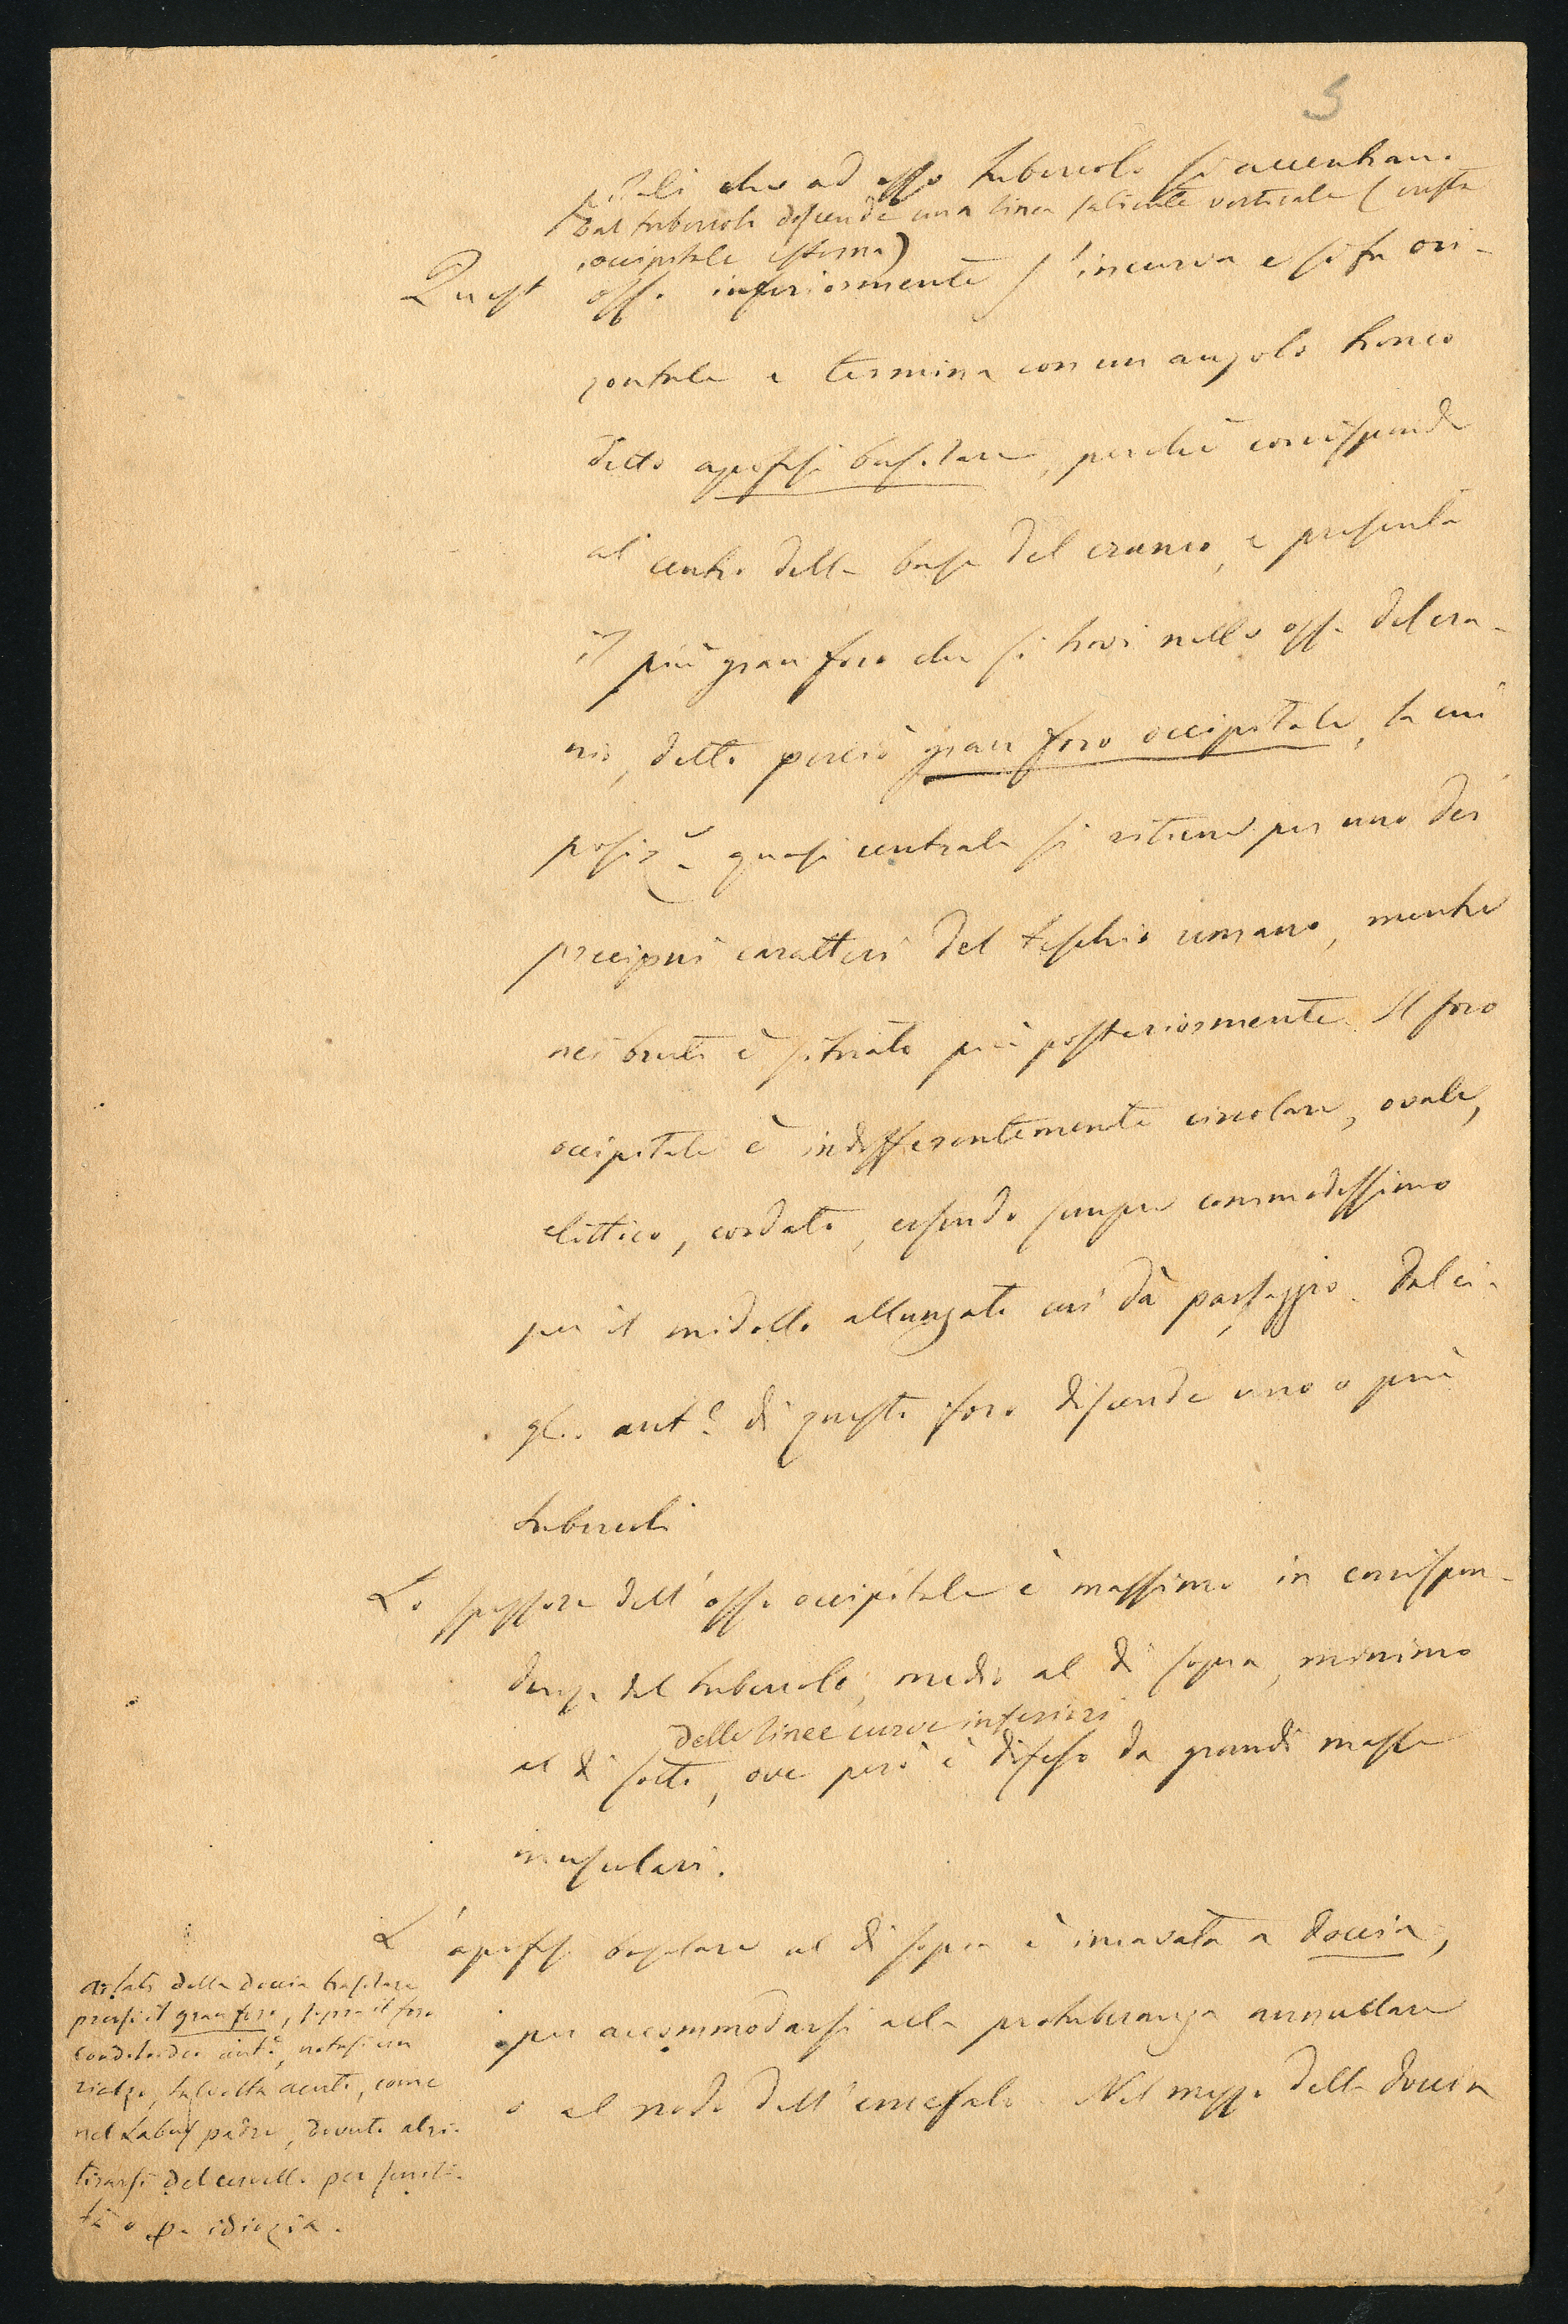 5
pitali che ad esso tubercolo si accentrano
Dal tubercolo discende una linea saliente verticale (cresta
occipitale esterna)
Quest' osso inferiormente s'incurva e si fa ori-
zontale e termina con un angolo tronco
detto apofisi basilare, perchè corrisponde
al centro della base del cranio, e presenta
il più gran foro che si trovi nelle ossa del cra-
nio, detto perciò gran foro occipitale, la cui
posize quasi centrale si ritiene per uno dei
precipui caratteri del teschio umano, mentre
nei bruti è situato più posteriormente. Il foro
occipitale è indifferentemente circolare, ovale,
elittico, cordato, essendo sempre commodissimo
per il midollo allungato cui dà passaggio. Dal ci-
glio ante di questo foro discende uno o più
tubercoli
Lo spessore dell'osso occipitale è massimo in corrispon-
denza del tubercolo, medio al di sopra, minimo
delle linee curve inferiori
al di sotto, ove però è difeso da grandi masse
muscolari.
L'apofisi basilare al di sopra è incavata a doccia,
per accommodarsi alla protuberanza annullare
o al nodo dell'encefalo. Nel mezzo della doccia
Ai lati della doccia basilare
presso il gran foro, sopra il foro
condiloideo ante, notasi un
rialzo, talvolta acuto, come
nel Labus padre, dovuto al ri-
tirarsi del cervello per senili-
tà o per idiozia.